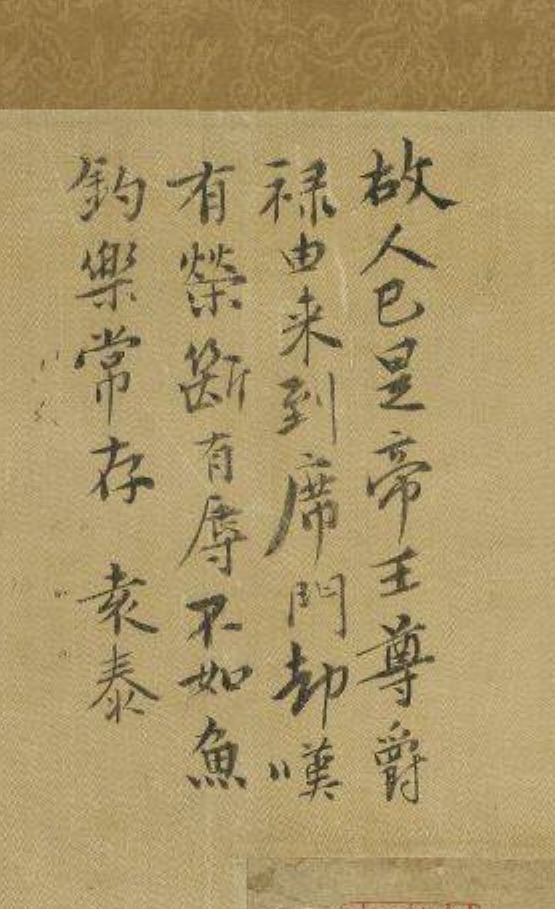 故人已是帝王尊爵
禄由来到席門却嘆
有榮断有辱不如魚
釣樂常存 袁泰